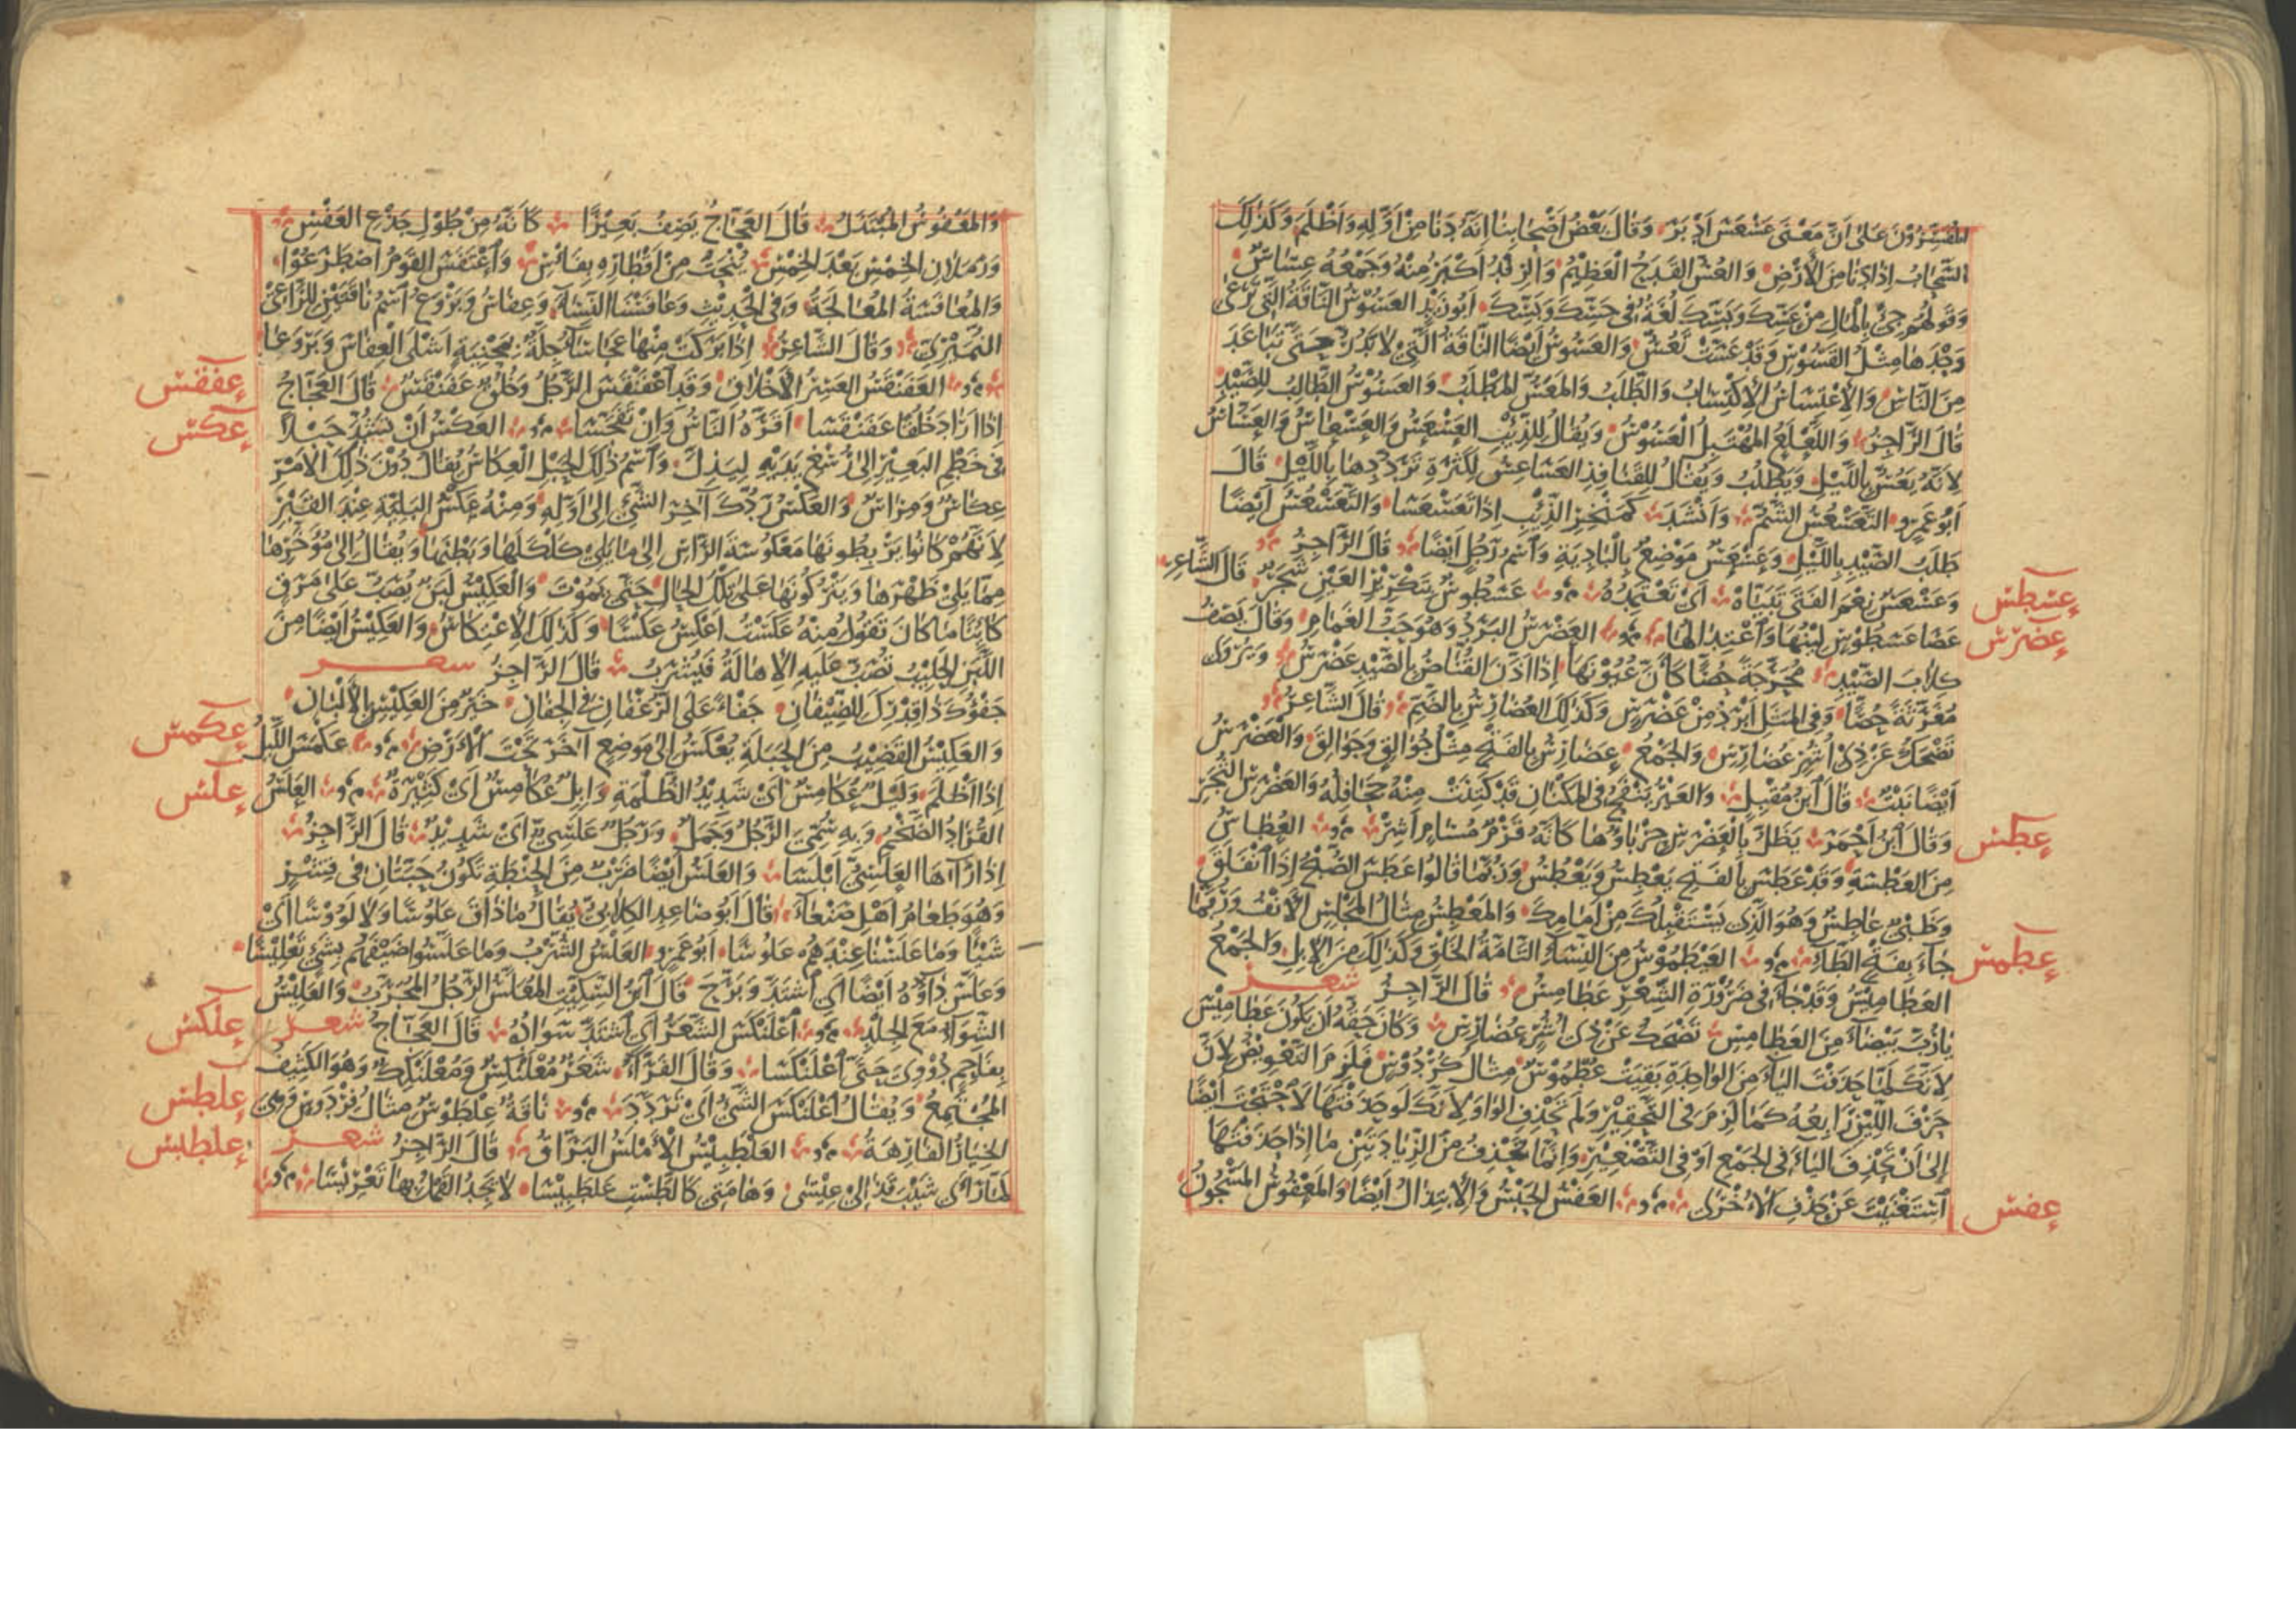 المفسرون على ان معنى عسعس ادبر وقال بعض اصحابنا انه دنا من اوله واظلم وكذلك
السحاب اذا دنا من الارض والعس القدح العظيم والرفد اكبر منه وجمعه عساس
وقولهم جئ بالمال من عسك وبسك لغة في حسك وبسك ابو زيد العسوس الناقة التي ترعى
وحدها مثل القسوس وقد عست تعس والعسوس ايضا الناقة التي لا تدر حتى تباعد
من الناس والاعتساس الاكتساب والطلب والمعس المطلب والعسوس الطالب للصيد
قال الراجز واللعلع المهتبل العسوس ويقال للذئب العسعس والعسعاس والعساس
لانه يعس بالليل ويطلب ويقال للقنافذ العساعس لكثرة ترددها بالليل قال
ابو عمرو التعسعس الشم وانشد كمنخر الذئب اذا تعسعسا والتعسعس ايضا
طلب الصيد بالليل وعسعس موضع بالبادية واسم رجل ايضا قال الراجز
وعسعس نعم الفتى تبياه اى تعتمده عسطوس بتكرير العين شجر قال الشاعر
عسطس
عصا عسطوس لينها واعتدالها العضرس البرد وهو حب الغمام وقال يصف
عضرس
كلاب الصيد محرجة حصا كان عيونها اذا اذن القناص بالصيد عضرس ويروى
مغرثة حصا وفي المثل ابرد من عضرس وكذلك العضارس بالضم قال الشاعر
تضحك عن ذى اشر عضارس والجمع عضارس بالفتح مثل جوالق وجوالق والعضرس
ايضا نبت قال ابن مقبل والعير ينفخ في المكنان قد كتنت منه جحافله والعضرس الثجر
وقال ابن احمر يظل بالعضرس حرباوها كانه قرم مسام اشر العطاس
عطس
من العطسة وقد عطس بالفتح يعطس ويعطس وربما قالوا عطس الصبح اذا انفلق
وظبي عاطس وهو الذى يستقبلك من امامك والمعطس مثال المجلس الانف وربما
جاء بفتح الطاء العيطموس من النساء التامة الخلق وكذلك من الابل والجمع
عطمس
العطاميس وقد جاء في ضرورة الشعر عطامس قال الراجز شعر
يا رب بيضاء من العطامس تضحك عن ذى اشر عضارس وكان حقه ان يكون عطاميس
لانك لما حذفت الياء من الواحدة بقيت عطموس مثال كردوس فلزم التعويض لان
حرف اللين رابعه كما لزم في التحقير ولم تحذف الواو لانك لو حذفتها لاحتجت ايضا
الى ان تحذف الياء في الجمع او في التصغير وانما تحذف من الزيادتين ما اذا حذفتها
استغنيت عن حذف الاخرى العفس الحبس والابتذال ايضا والمعفوس المسجون
عفس
والمعفوس المبتذل قال العجاج يصف بعيرا كانه من طول جذع العفس
ورملان الخمس بعد الخمس ينحت من اقطاره بفاس واعتفس القوم اضطرعوا
والمعافسة المعالجة وفي الحديث وعافسنا النساء وعفاس وبروع اسم ناقتين للراعي
النميرى وقال الشاعر اذا بركت منها عجاساء جلة بمحنية اشلى العفاس وبروعا
العفنقس العسر الاخلاق وقد اعفنقس الرجل وخلق عفنقس قال العجاج
عفقس
اذا اراد خلقا عفنقسا اقره الناس وان تفجسا العكس ان تشد حبلا
عكس
في خطم البعير الى رسغ يديه ليذل واسم ذلك الحبل العكاس يقال دون ذلك الامر
عكاس ومراس والعكس ردك اخر الشئ الى اوله ومنه عكس البلية عند القبر
لانهم كانوا يربطونها معكوسة الراس الى ما يلى كلكلها وبطنها ويقال الى موخرها
مما يلى ظهرها ويتركونها على تلك الحال حتى تموت والعكيس لبن يصب على مرق
كائنا ما كان تقول منه عكست اعكس عكسا وكذلك الاعتكاس والعكيس ايضا من
اللبن الحليب تصب عليه الاهالة فيشرب قال الراجز شعر
جفوك ذا قدرك للضيفان جفاء على الرغفان في الجفان خير من العكيس بالالبان
والعكيس القضيب من الحبلة يعكس الى موضع اخر تحت الارض عكمس الليل
عكمس
اذا اظلم وليل عكامس اى شديد الظلمة وابل عكامس اى كثيرة العلس
علس
القراد الضخم وبه سمى الرجل وجمل ورجل علسي اى شديد قال الراجز
اذا راها العلسي ابلسا والعلس ايضا ضرب من الحنطة تكون حبتان في قشر
وهو طعام اهل صنعاء قال ابو صاعد الكلابي يقال ما ذاق علوسا ولا لووسا اى
شيا وما علسنا عندهم علوسا ابو عمرو العلس الشرب وما علسوا ضيفهم بشئ تعليسا
وعلس داؤه ايضا اى اشتد وبرح قال ابن السكيت المعلس الرجل المجرب والعليس
الشواء مع الجلد اعلنكس الشعر اى اشتد سواده قال العجاج شعر
علكس
بفاحم دووى حتى اعلنكسا وقال الفراء شعر معلنكس ومعلنكك وهو الكثيف
المجتمع ويقال اعلنكس الشئ اى تردد ناقة علطوس مثال فردوس وهى
علطس
الخيار الفارهة العلطبيس الاملس البراق قال الراجز شعر
علطبس
لما راى شيب قذالى عيسا وهامتى كالطست علطبيسا لا يجد القمل بها تعريسا